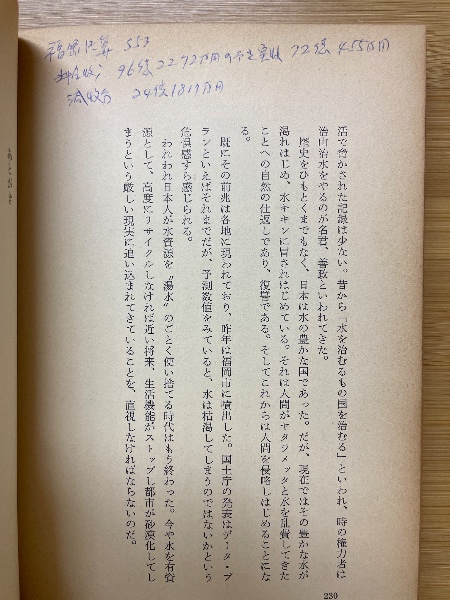 福岡決算 S53
料金収 96億2272万円の予定 実収 72億455万円
減収分 24億1817万円
活で脅かされた記録は少ない。昔から「水を治むるもの国を治むる」といわれ、時の権力者は
治山治水をやるのが名君、善政といわれてきた。
歴史をひもとくまでもなく、日本は水の豊かな国であった。だが、現在ではその豊かな水が
渇れはじめ、水キキンに冒されはじめている。それは人間がヤタラメッタと水を乱費してきた
ことへの自然の仕返しであり、復讐である。そしてこれからは人間を侵略しはじめることにな
る。
既にその前兆は各地に現われており、昨年は福岡市に噴出した。国土庁の発表はデータ・プ
ランといえばそれまでだが、予測数値をみていると、水は枯渇してしまうのではないかという
危惧感すら感じられる。
われわれ日本人が水資源を〝湯水〟のごとく使い捨てる時代はもう終わった。今や水を有資
源として、高度にリサイクルしなければ近い将来、生活機能がストップし都市が砂漠化してし
まうという厳しい現実に追い込まれてきていることを、直視しなければならないのだ。
あとがき
230